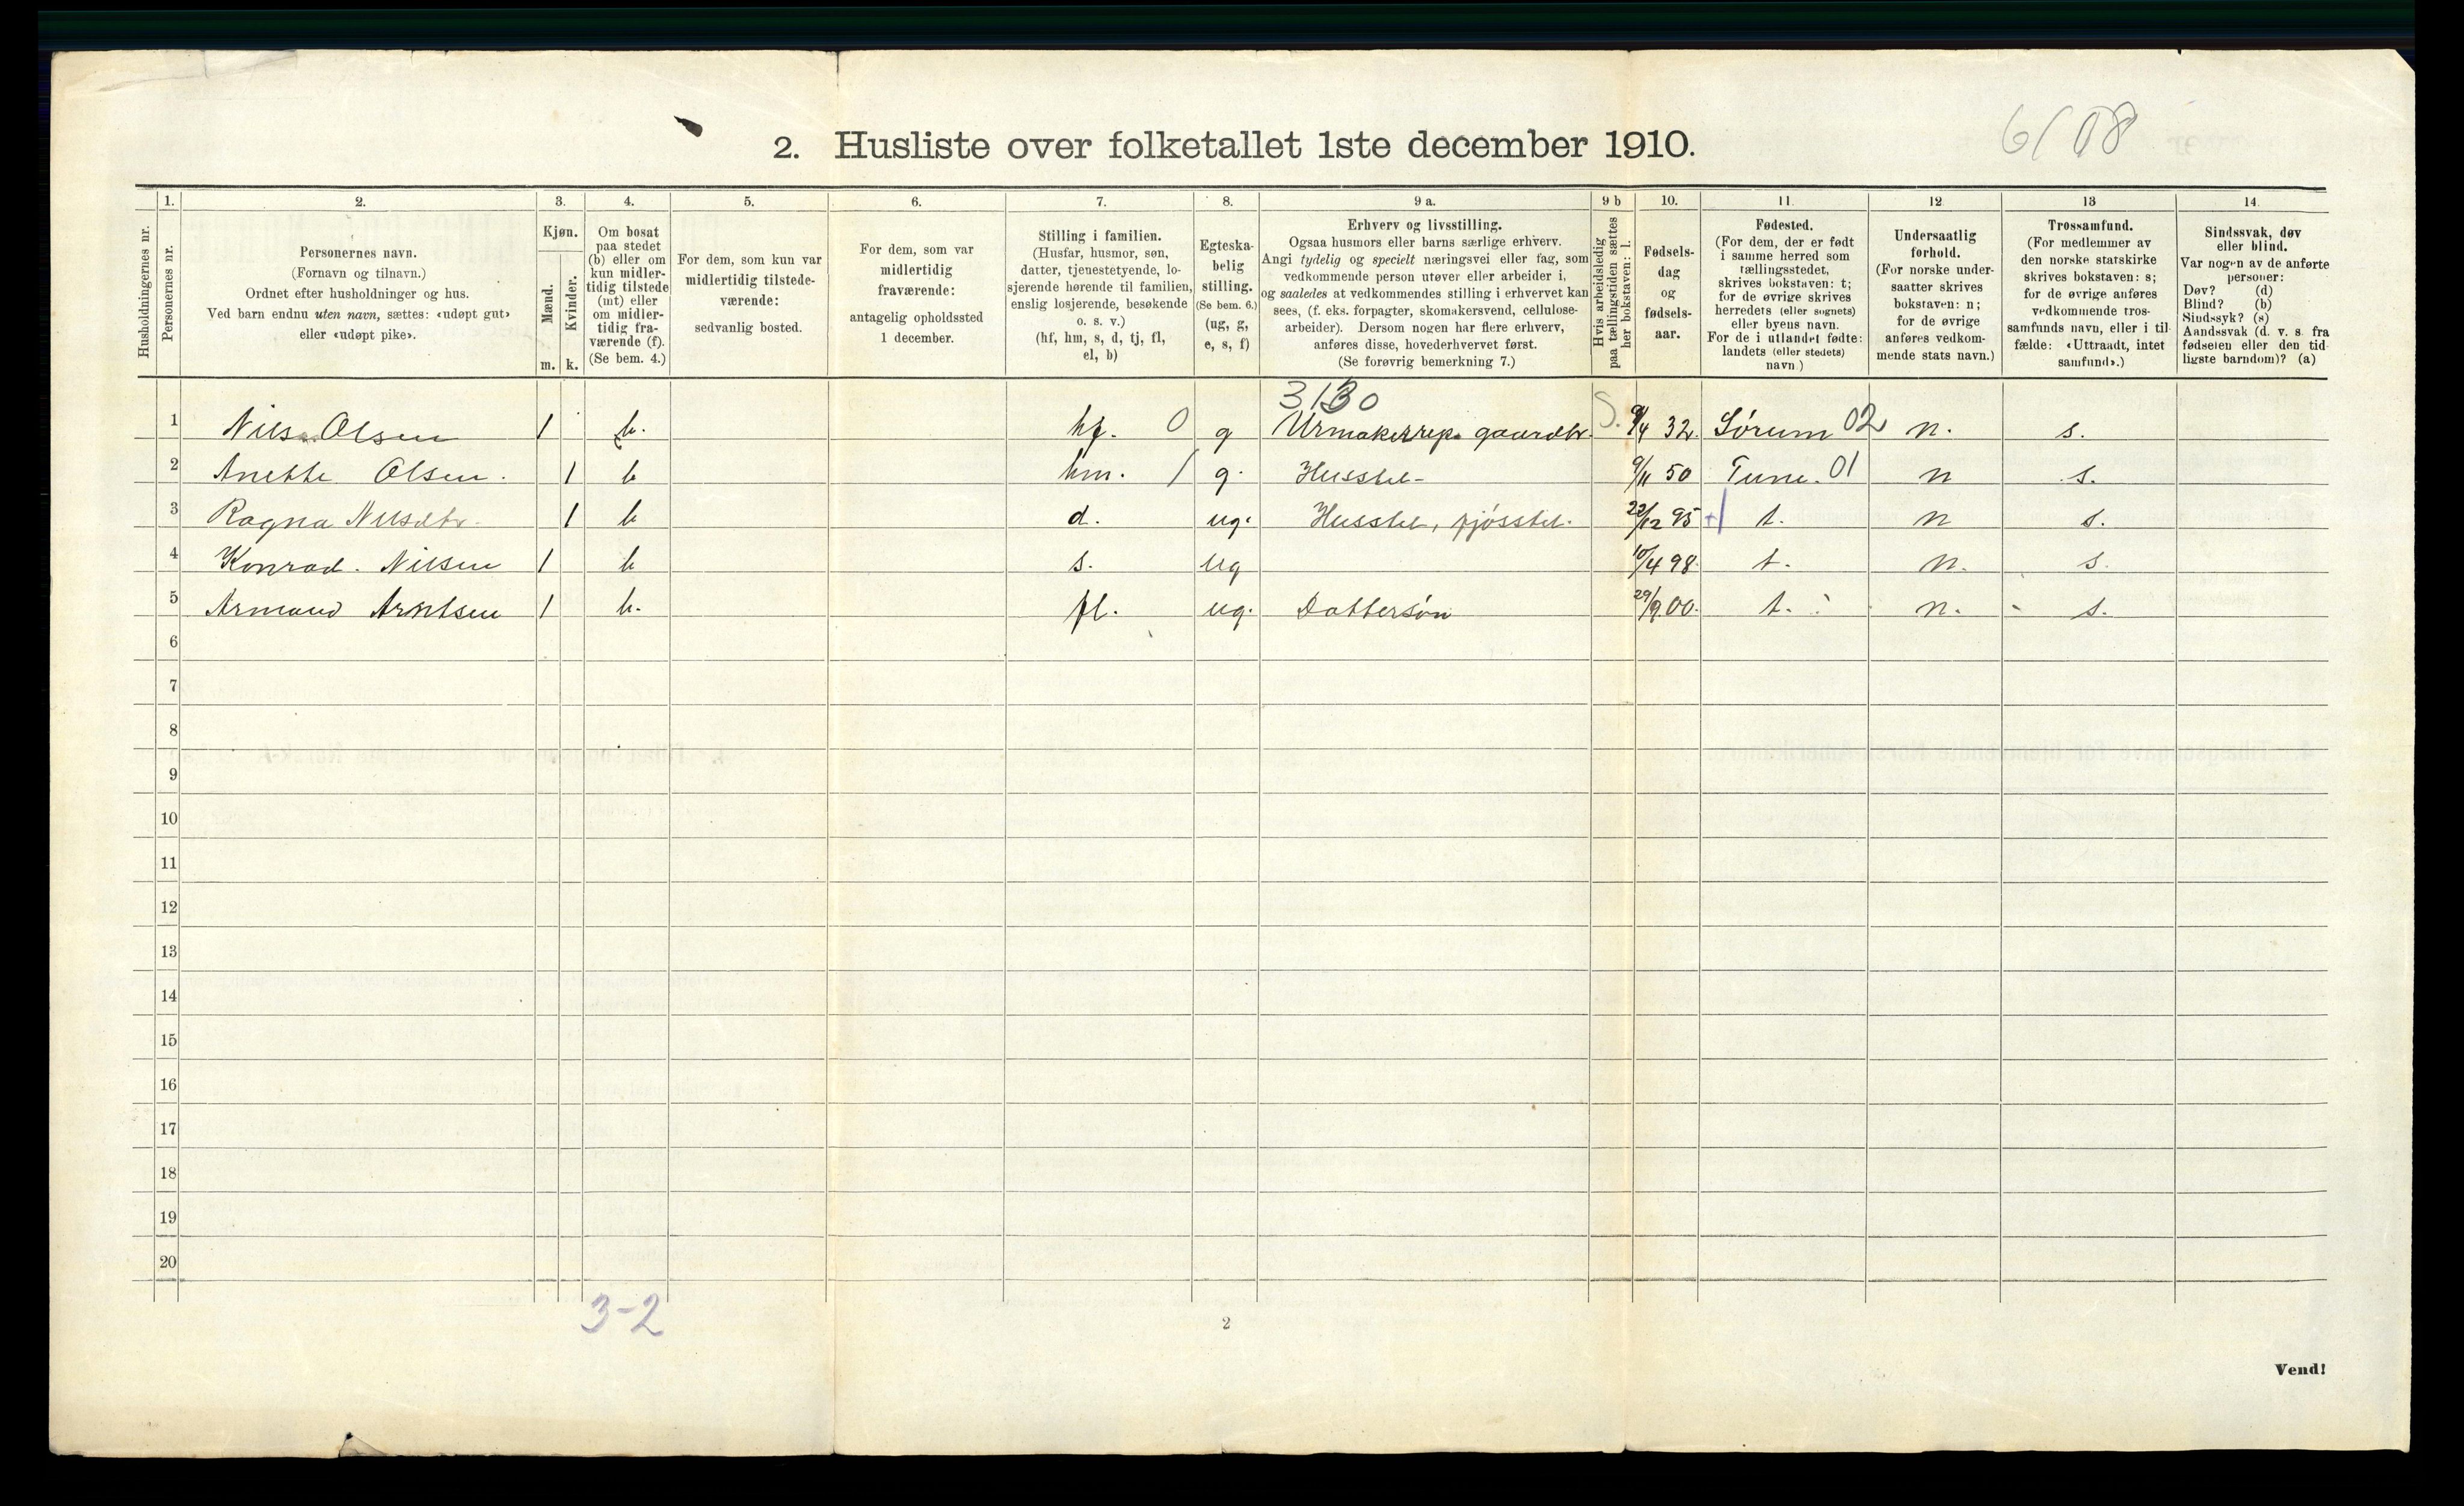 6108
2. Husliste over folketallet 1ste december 1910.
Husholdningernes nr.
1.
Personernes nr.
2.
Personernes navn.
(Fornavn og tilnavn.)
Ordnet efter husholdninger og hus.
Ved barn endnu uten navn, sættes: «udøpt gut»
eller «udøpt pike».
3.
Kjøn.
Mænd.
Kvinder.
m. k.
4.
Om bosat
paa stedet
(b) eller om
kun midler-
tidig tilstede
(mt) eller
om midler-
tidig fra-
værende (f).
(Se bem. 4.)
5.
For dem, som kun var
midlertidig tilstede-
værende:
sedvanlig bosted.
6.
For dem, som var
midlertidig
fraværende:
antagelig opholdssted
1 december.
7.
Stilling i familien.
(Husfar, husmor, søn,
datter, tjenestetyende, lo-
sjerende hørende til familien,
enslig losjerende, besøkende
o. s. v.)
(hf, hm, s, d, tj, fl,
el, b)
8.
Egteska-
belig
stilling.
(Se bem. 6.)
(ug, g,
e, s, f)
9 a.
Erhverv og livsstilling.
Ogsaa husmors eller barns særlige erhverv.
Angi tydelig og specielt næringsvei eller fag, som
vedkommende person utøver eller arbeider i,
og saaledes at vedkommendes stilling i erhvervet kan
sees, (f. eks. forpagter, skomakersvend, cellulose-
arbeider). Dersom nogen har flere erhverv,
anføres disse, hovederhvervet først.
(Se forøvrig bemerkning 7.)
9 b
Hvis arbeidsledig
paa tællingstiden sættes
her bokstaven: l.
10.
Fødsels-
dag
og
fødsels-
aar.
11.
Fødested.
(For dem, der er født
i samme herred som
tællingsstedet,
skrives bokstaven: t;
for de øvrige skrives
herredets (eller sognets)
eller byens navn.
For de i utlandet fødte:
landets (eller stedets)
navn.)
12.
Undersaatlig
forhold.
(For norske under-
saatter skrives
bokstaven: n;
for de øvrige
anføres vedkom-
mende stats navn.)
13
Trossamfund.
(For medlemmer av
den norske statskirke
skrives bokstaven: s;
for de øvrige anføres
vedkommende tros-
samfunds navn, eller i til
fælde: «Uttraadt, intet
samfund».)
14.
Sindssvak, døv
eller blind.
Var nogen av de anførte
personer:
Døv? (d)
Blind? (b)
Sindssyk? (s)
Aandssvak (d. v. s. fra
fødselen eller den tid-
ligste barndom)? (a)
1 Nils Olsen 1 b. hf. 0 g Urmakerrep. gaardbr. S. 9/4 32. Sørum 02 n. s.
2 Anette Olsen. 1 b hm. 1 g. Husstel- 9/11 50 Tune. 01 n s.
3 Ragna Nilsdtr. 1 b d. ug. Husstel, fjøsstel. 22/12 95 t. n s.
4 Konrad. Nilsen 1 b s. ug 10/4 98. t. n. s.
5 Armand Arntsen 1 b. fl. ug. Dattersøn 29/9 00. t. n. s.
6
7
8
9
10
11
12
13
14
15
16
17
18
19
20
3-2
2
Vend!